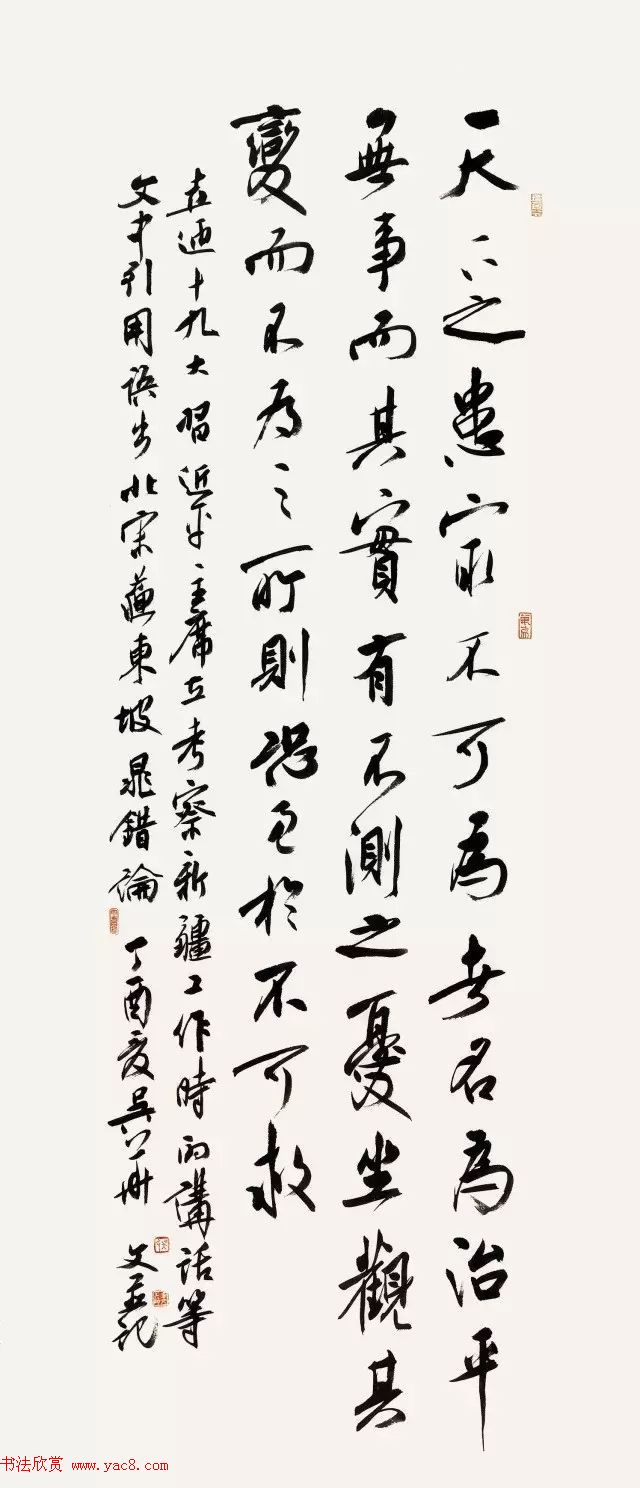 天下之患最不可為者名為治平
無事而其實有不測之憂坐觀其
變而不為之所則恐至於不可救
喜迎十九大習近平主席在考察新疆工作時的講話等
文中引用語出北宋蘇東坡晁錯論 丁酉夏吳 文 記
书法欣赏 www.yac8.com